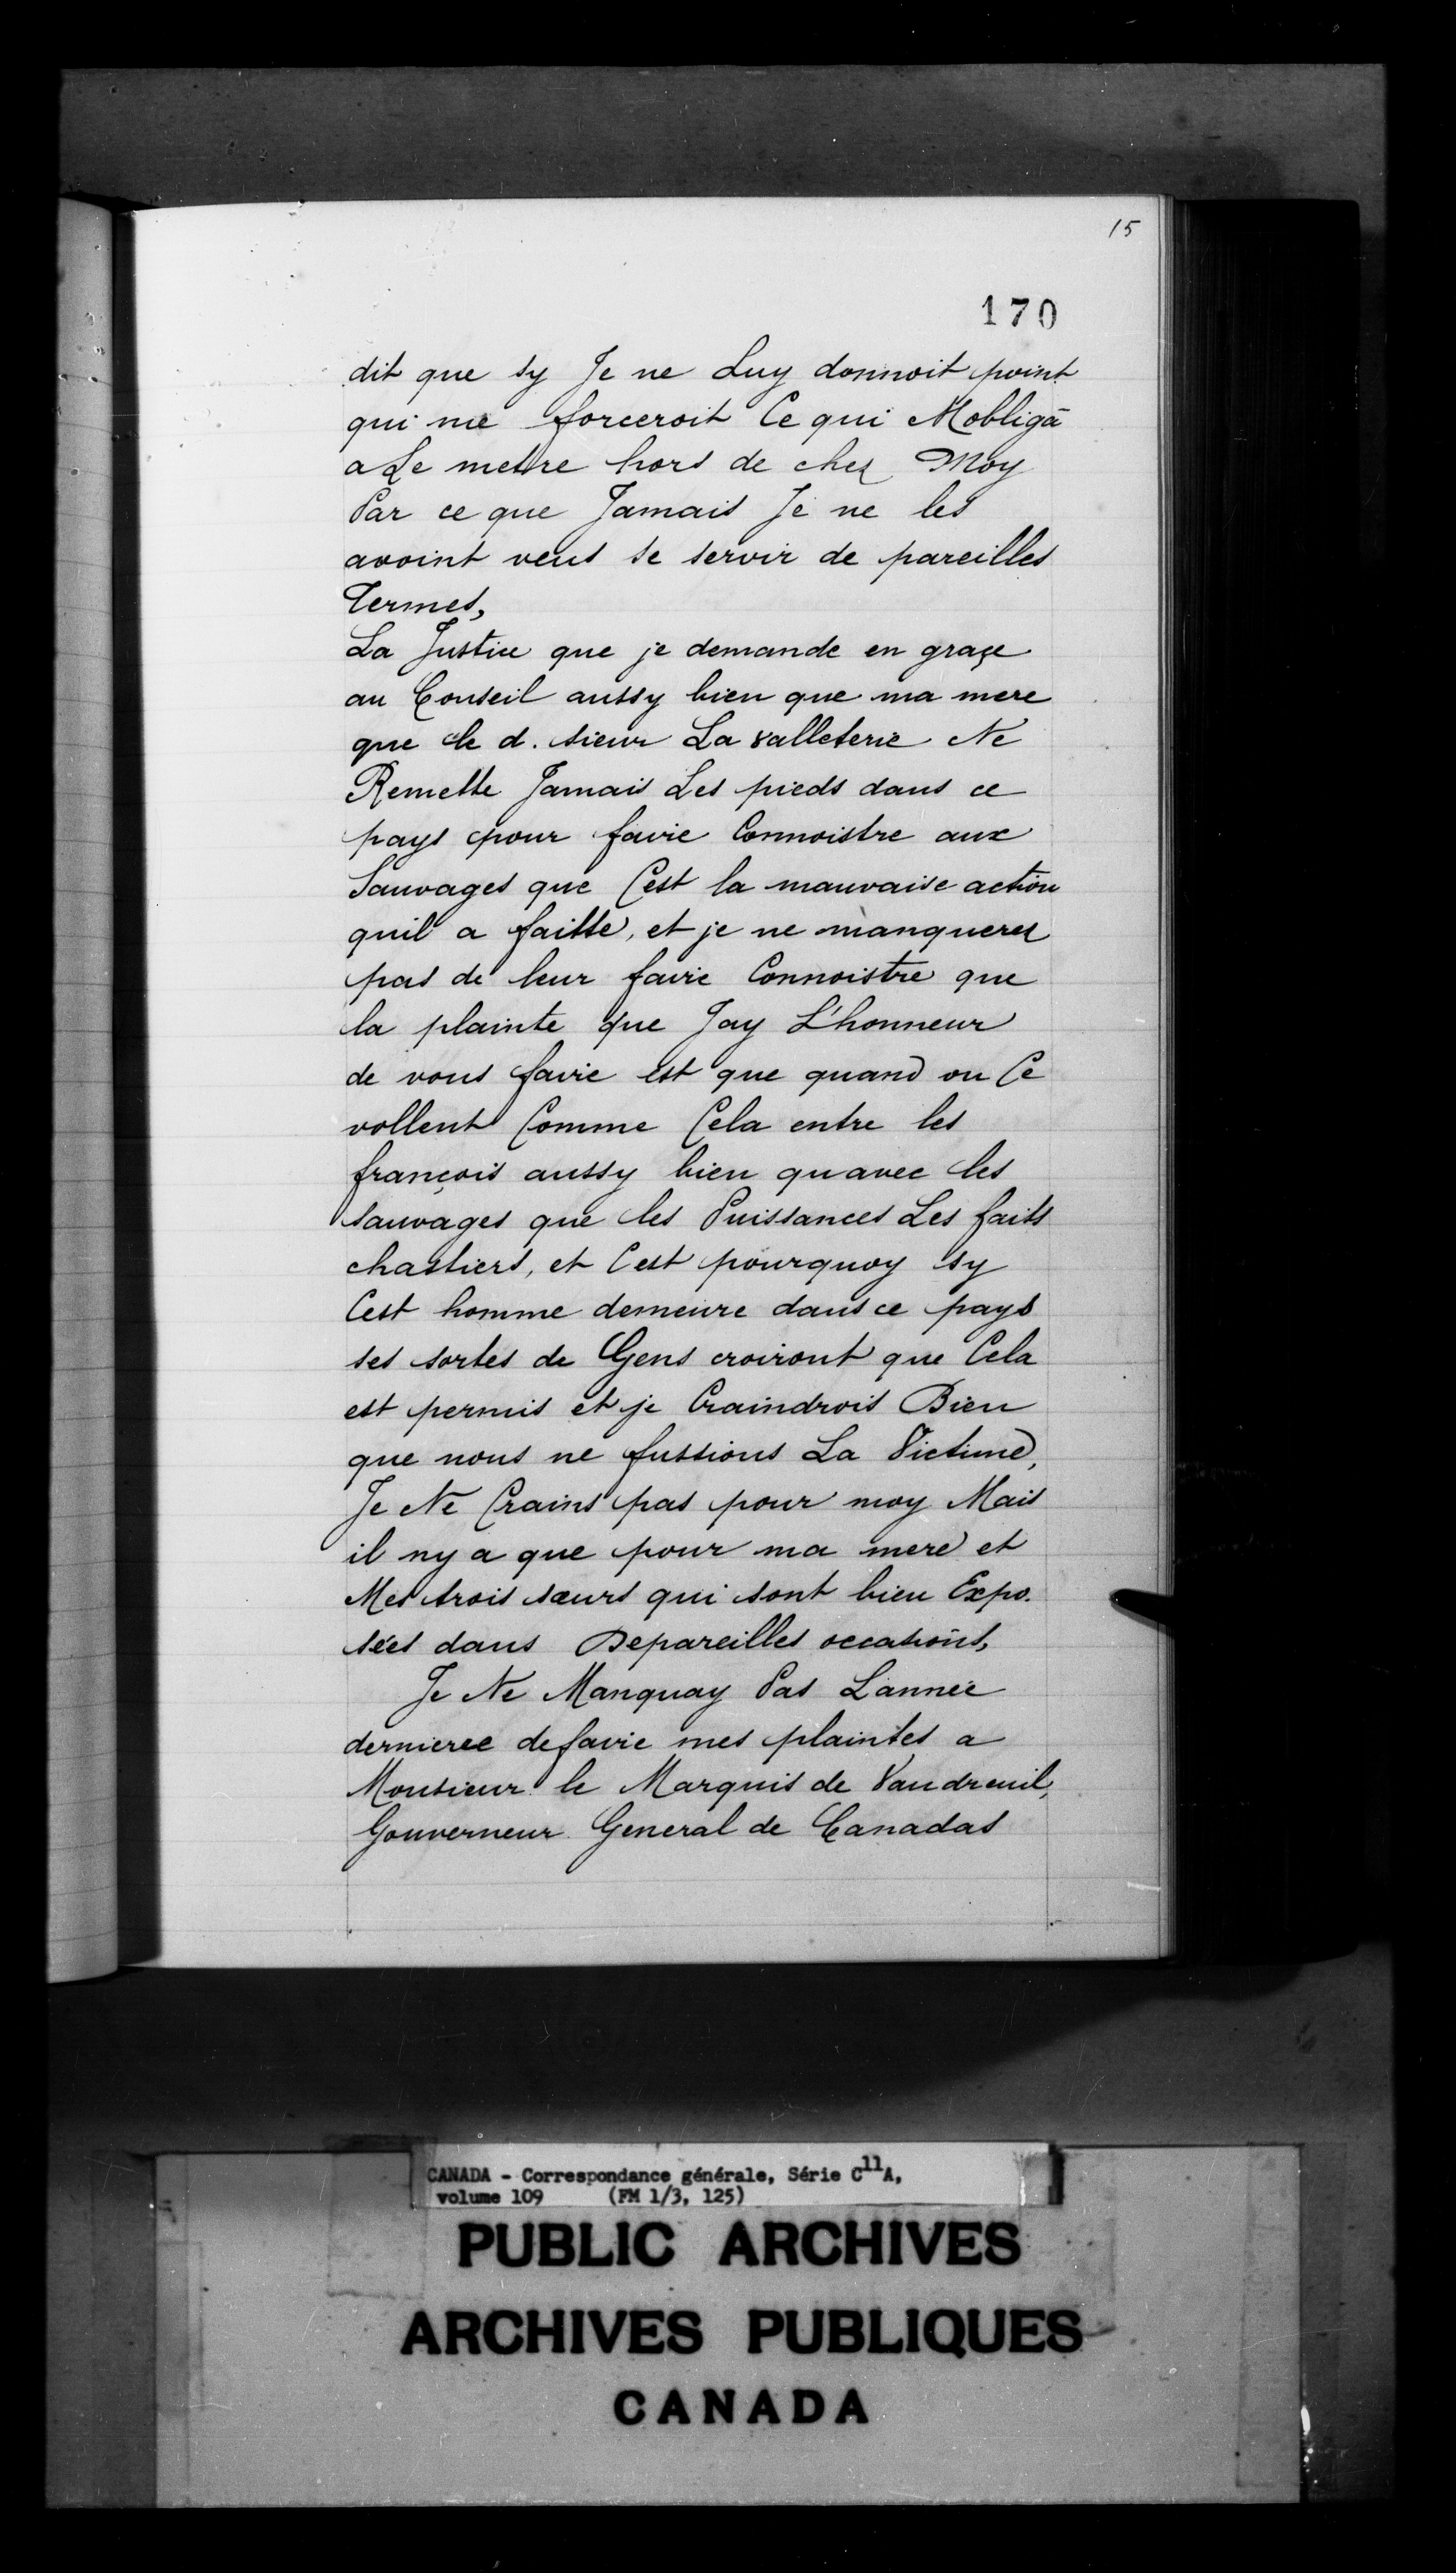 15
170
dit que sy Je ne Luy donnoit point
qui me forceroit Ce qui Mobliga
a Le metre hors de chez Moy
Par ce que Jamais Je ne les
avoint veus se servir de pareilles
Termes,
La Justice que je demande en graçe
au Conseil aussy bien que ma mere
que le d. sieur La valleterie Ne
Remette Jamais Les pieds dans ce
pays pour faire Connoistre aux
Sauvages que Cest la mauvaise action
quil a faitte, et je ne manquerez
pas de leur faire Connoistre que
la plainte que Jay L'honneur
de vous faire est que quand on Ce
vollent Comme Cela entre les
françois aussy bien quavec les
sauvages que les Puissances Les faits
chastiers, et Cest pourquoy sy
Cest homme demeure dans ce pays
ses sortes de Gens croiront que Cela
est permis et je Craindrois Bien
que nous ne fussions La Victime,
Je Ne Crains pas pour moy Mais
il ny a que pour ma mere et
Mes trois sœurs qui sont bien Expo.
sées dans Depareilles occasions,
Je Ne Manquay Pas L'année
dernieree defaire mes plaintes a
Monsieur le Marquis de Vaudreuil,
Gouverneur General de Canadas
CANADA - Correspondance générale, Série C11A,
volume 109 (FM 1/3, 125)
PUBLIC ARCHIVES
ARCHIVES PUBLIQUES
CANADA